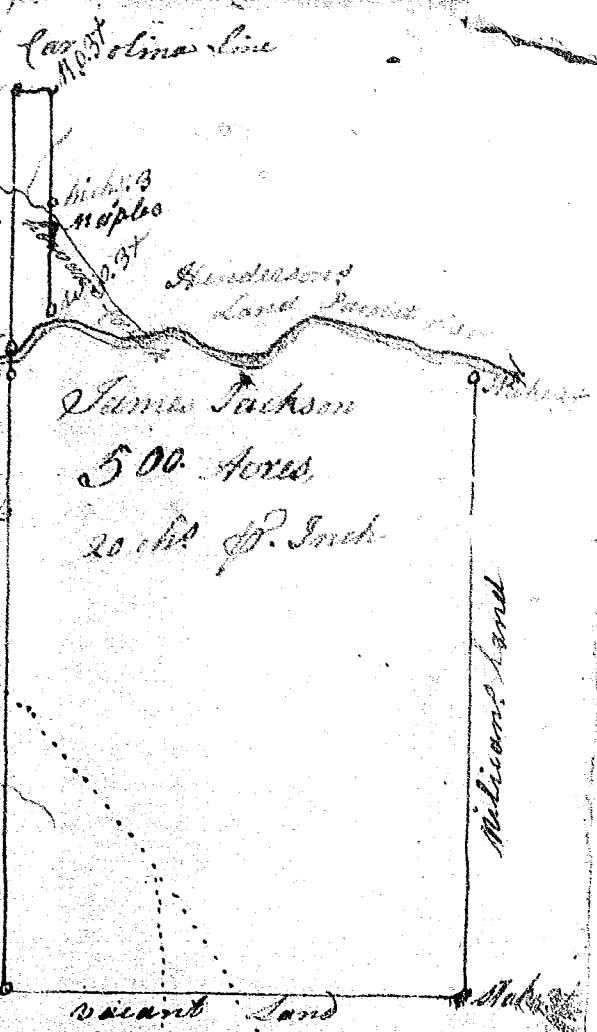 Carolina Line
W.O. 3X
hick. 3
Maples
W.O. 3X
Hendersons
Land
James Jackson
500 Acres
20 chs. pr. Inch
Land
vacant Land